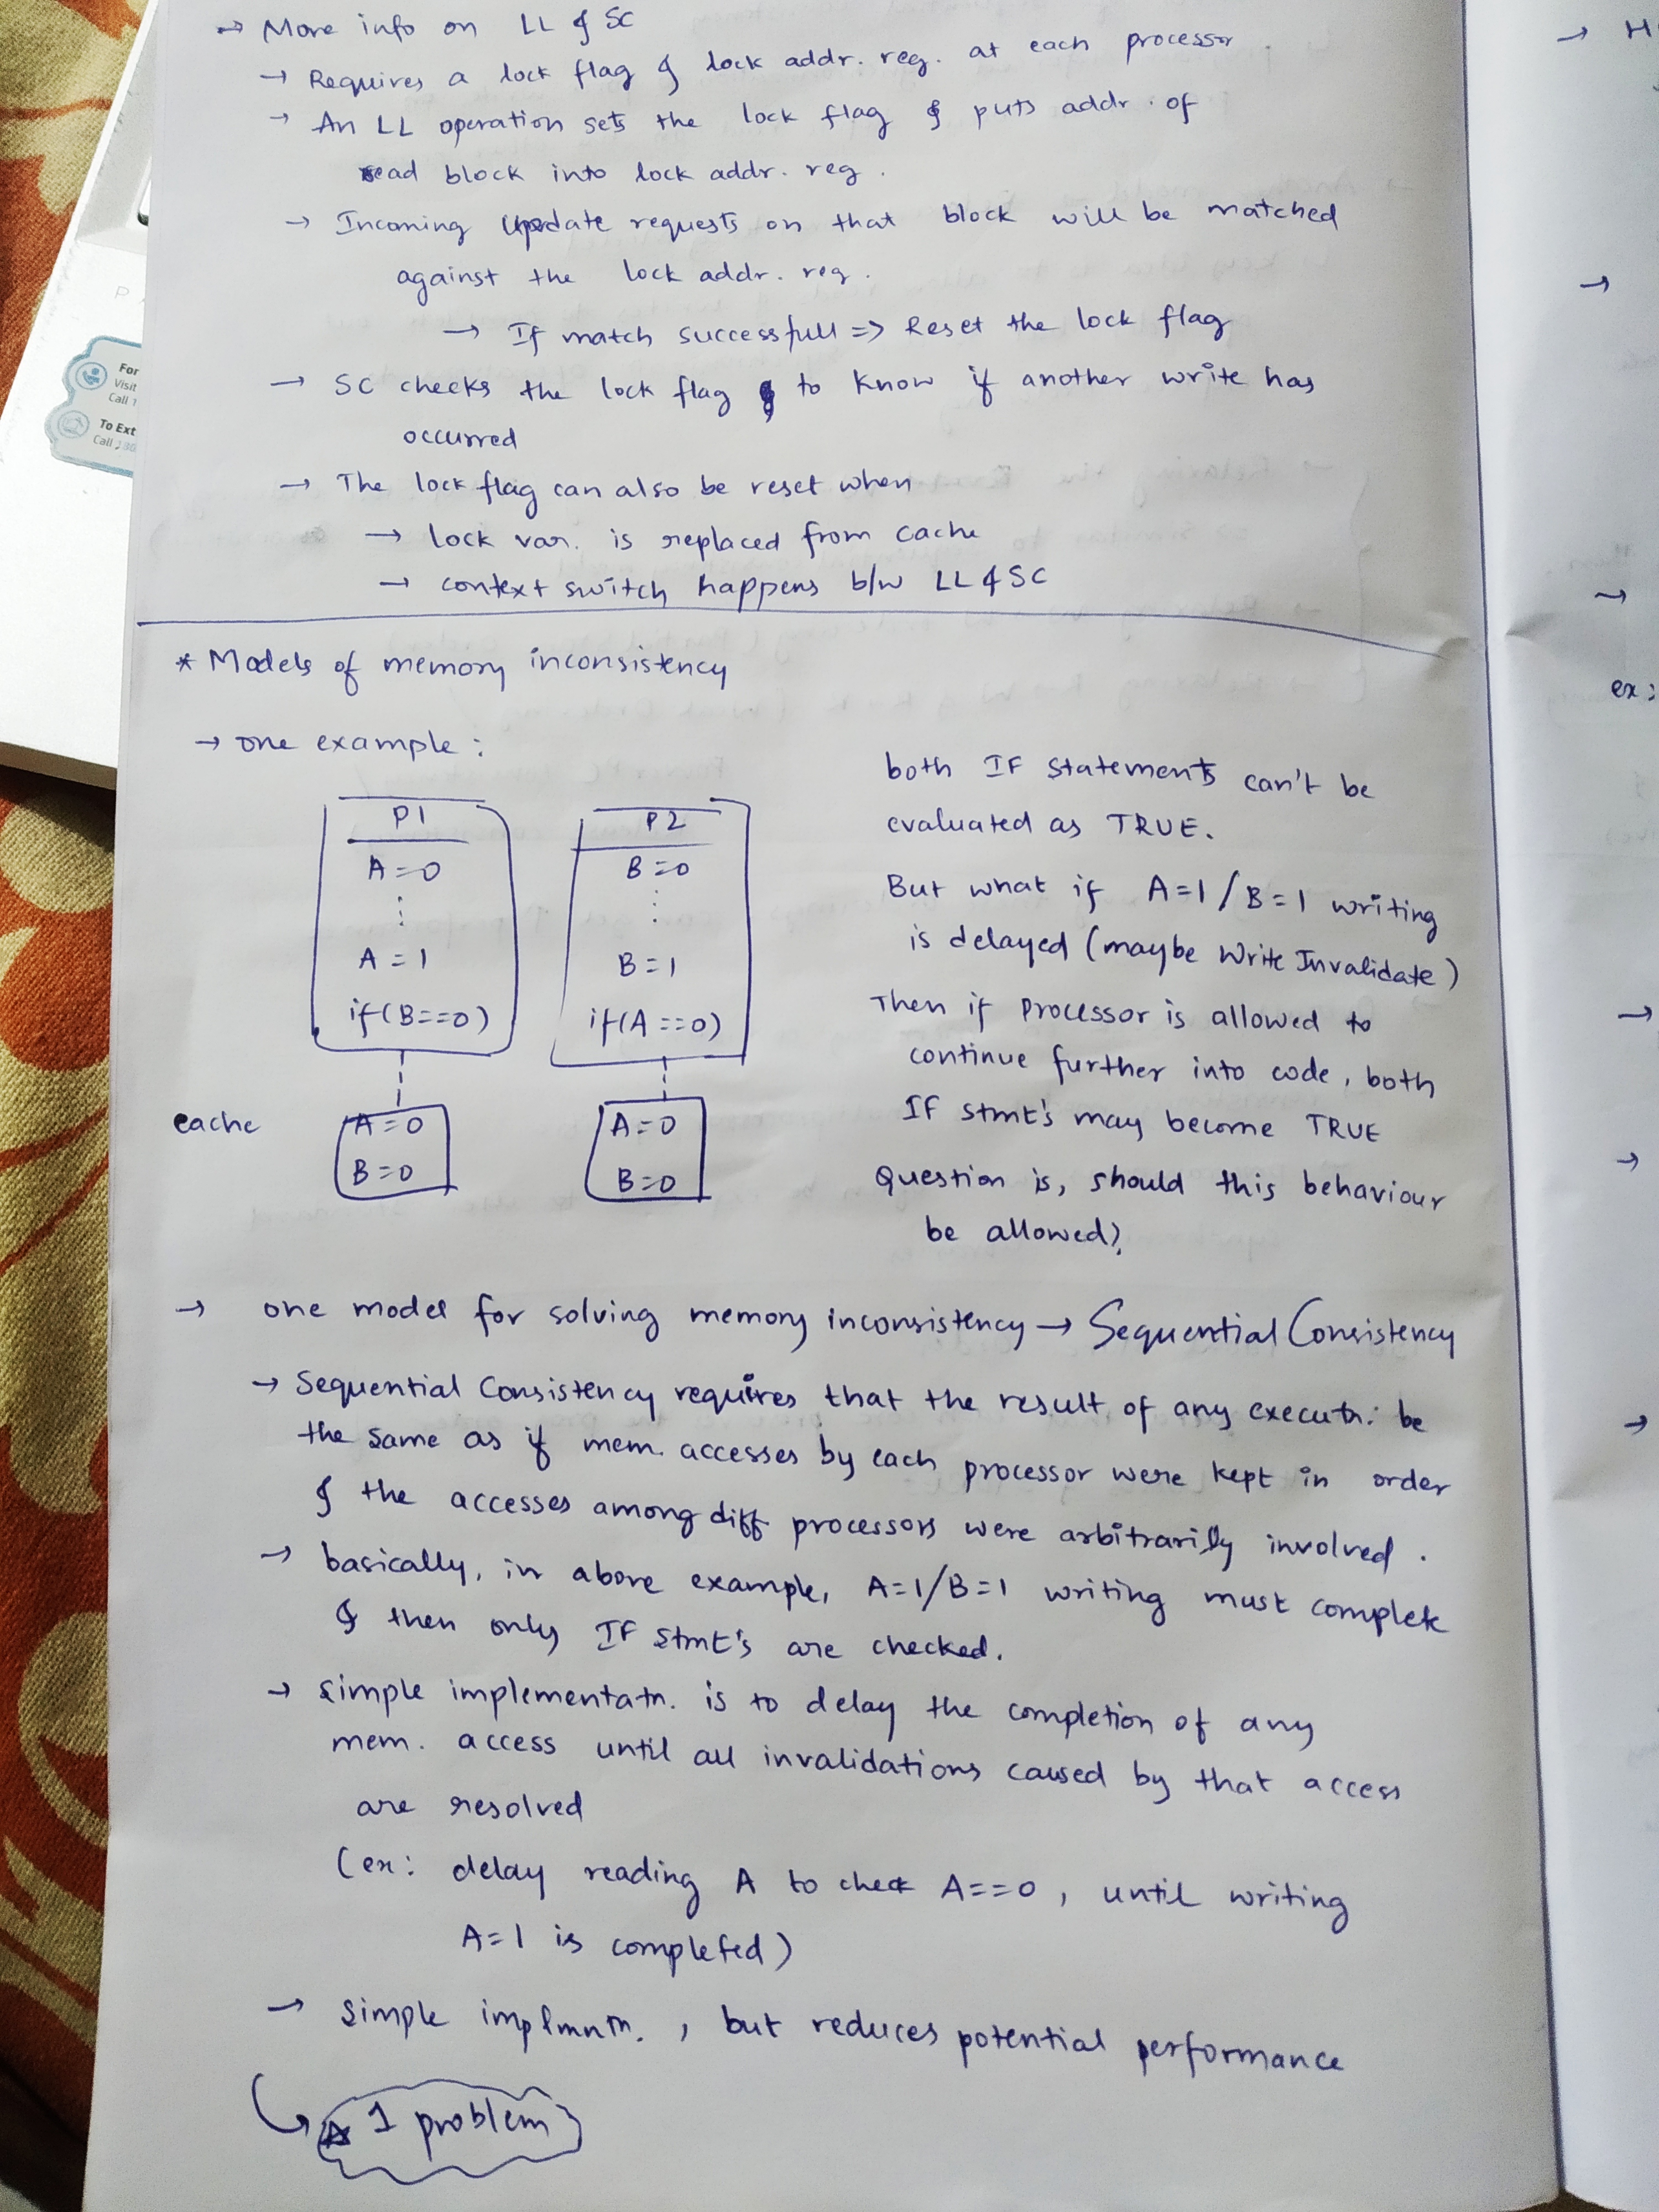 → More info on LL & SC
→ Requires a lock flag & lock addr. reg. at each processor.
→ An LL operation sets the lock flag & puts addr. of
read block into lock addr. reg.
→ Incoming update requests on that block will be matched
against the lock addr. reg.
→ If match successfull => Reset the lock flag
→ SC checks the lock flag to know if another write has
occurred
→ The lock flag can also be reset when
→ lock var. is replaced from cache
→ context switch happens b/w LL & SC
* Models of memory inconsistency
→ one example:
P1
A=0
⋮
A=1
if(B==0)
P2
B=0
⋮
B=1
if(A==0)
cache
A=0
B=0
A=0
B=0
both IF statements can't be
evaluated as TRUE.
But what if A=1/B=1 writing
is delayed (maybe Write Invalidate)
Then if processor is allowed to
continue further into code, both
IF stmt's may become TRUE
Question is, should this behaviour
be allowed?
→ one model for solving memory inconsistency → Sequential Consistency
→ Sequential Consistency requires that the result of any executn. be
the same as if mem. accesses by each processor were kept in order
& the accesses among diff processors were arbitrarily involved.
→ basically, in above example, A=1/B=1 writing must complete
& then only IF stmt's are checked.
→ simple implementatn. is to delay the completion of any
mem. access until all invalidations caused by that access
are resolved
(ex: delay reading A to check A==0, until writing
A=1 is completed)
→ simple implmntn., but reduces potential performance
1 problem
For
Visit
Call 1
To Ext
Call
→ H
→
→
ex:
→
→
→